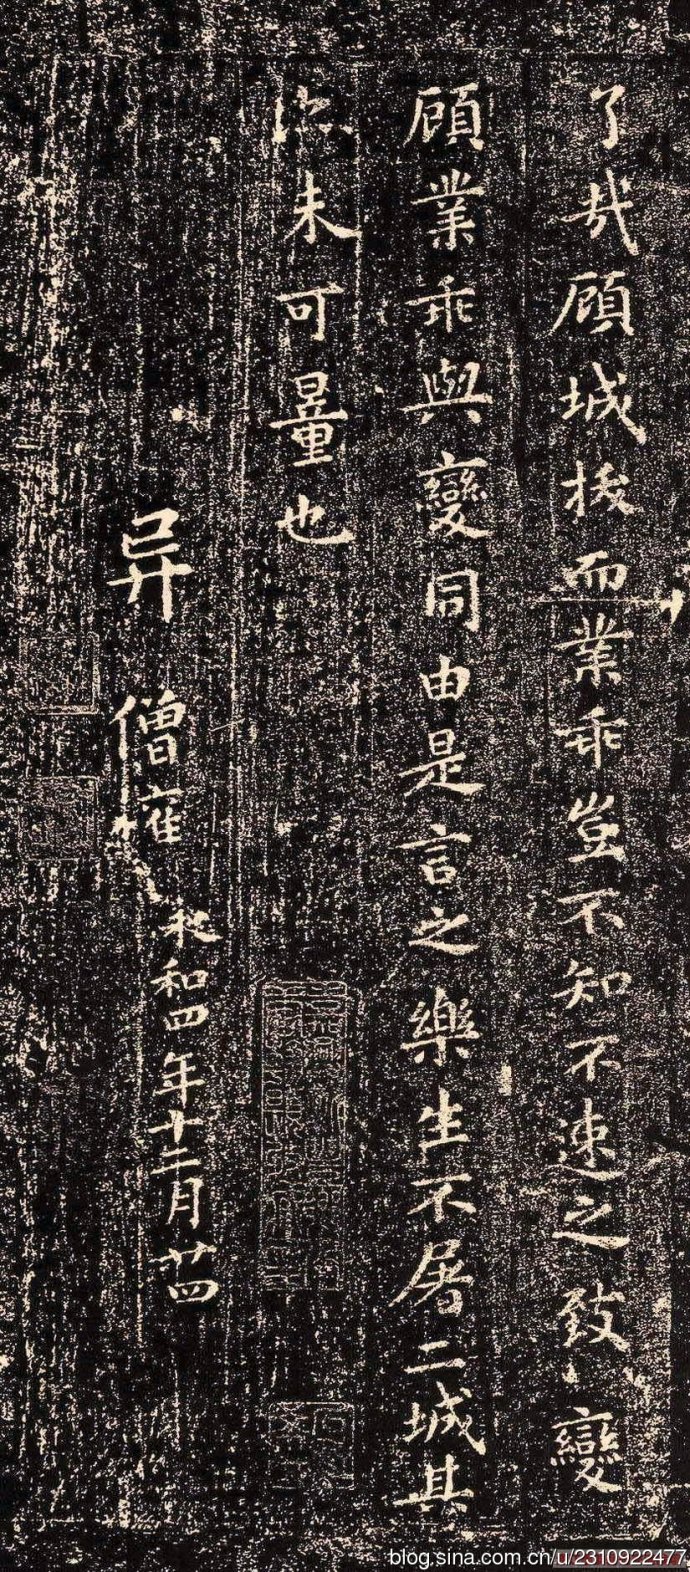 了哉顧城拔而業乖豈不知不速之致變
顧業乖與變同由是言之樂生不屠二城其
未可量也
异 僧權 永和四年十二月廿四
blog.sina.com.cn/u/2310922477